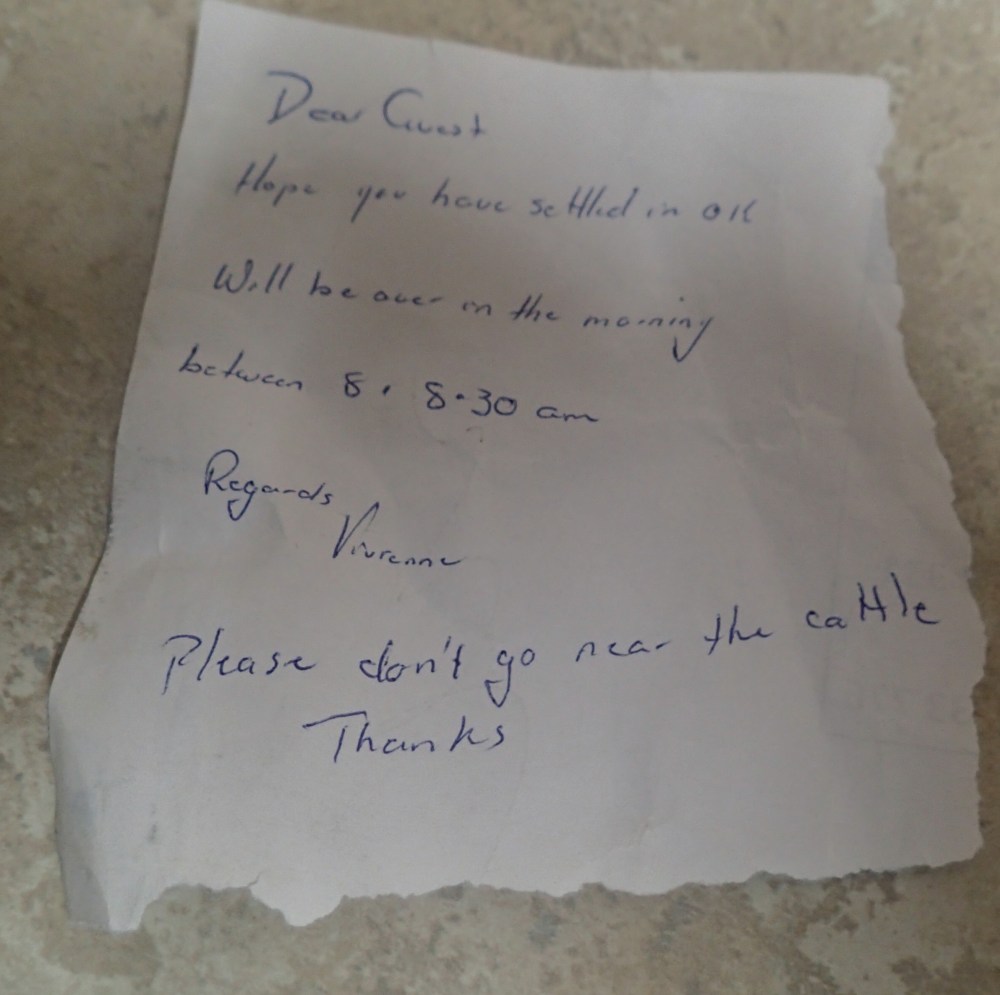 Dear Guest
Hope you have settled in OK
Will be over in the morning
between 8. 8.30 am
Regards
Vivienne
Please don't go near the cattle
Thanks